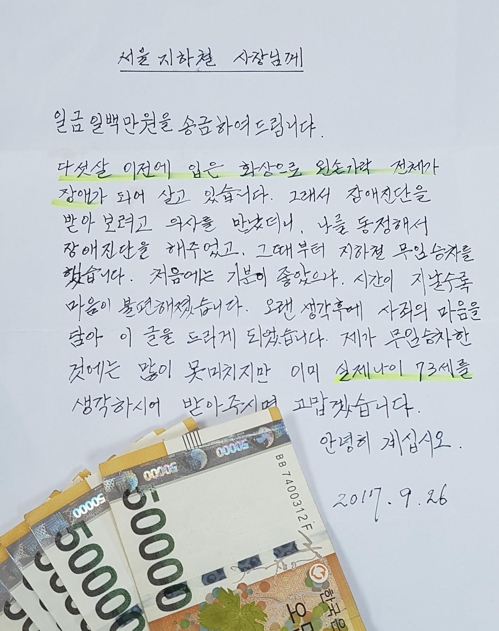 서울 지하철 사장님께
일금 일백만원을 송금하여 드립니다.
다섯살 이전에 입은 화상으로 왼손가락 전체가
장애가 되어 살고 있습니다. 그래서 장애진단을
받아 보려고 의사를 만났더니, 나를 동정해서
장애진단을 해주었고, 그때부터 지하철 무임승차를
했습니다. 처음에는 기분이 좋았으나, 시간이 지날수록
마음이 불편해졌습니다. 오랜 생각후에 사죄의 마음을
담아 이 글을 드리게 되었습니다. 제가 무임승차한
것에는 많이 못미치지만 이미 실제나이 73세를
생각하시어 받아주시면 고맙겠습니다.
안녕히 계십시오.
2017. 9. 26
50000
50000
50000
50000
50000
50000
BB7400312F
50000
한국은
오만